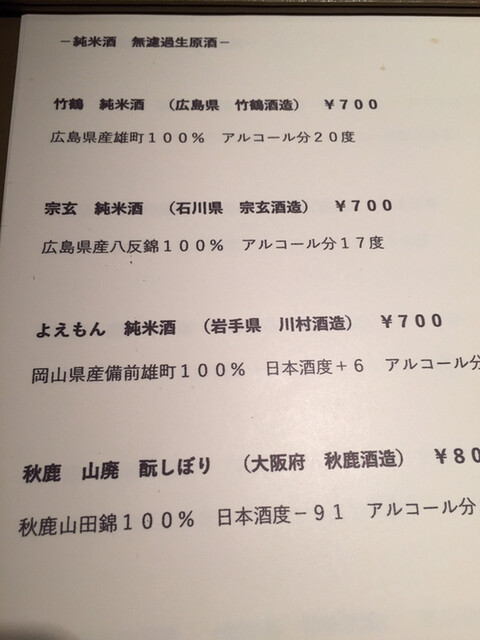 －純米酒　無濾過生原酒－
竹鶴　純米酒　（広島県　竹鶴酒造）　￥７００
広島県産雄町１００％　アルコール分２０度
宗玄　純米酒　（石川県　宗玄酒造）　￥７００
広島県産八反錦１００％　アルコール分１７度
よえもん　純米酒　（岩手県　川村酒造）　￥７００
岡山県産備前雄町１００％　日本酒度＋６　アルコール分
秋鹿　山廃　酛しぼり　（大阪府　秋鹿酒造）　￥８０
秋鹿山田錦１００％　日本酒度－９１　アルコール分